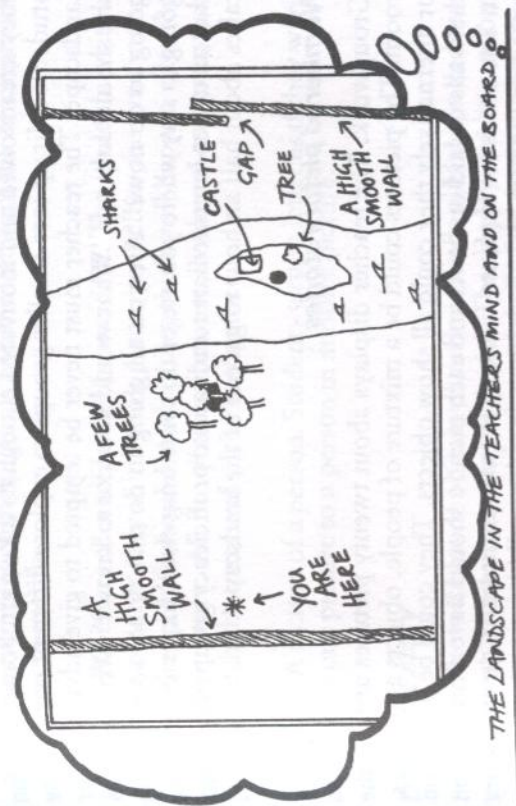 A
HIGH
SMOOTH
WALL
YOU
ARE
HERE
A FEW
TREES
SHARKS
CASTLE
GAP
TREE
A HIGH
SMOOTH
WALL
THE LANDSCAPE IN THE TEACHERS MIND AND ON THE BOARD.